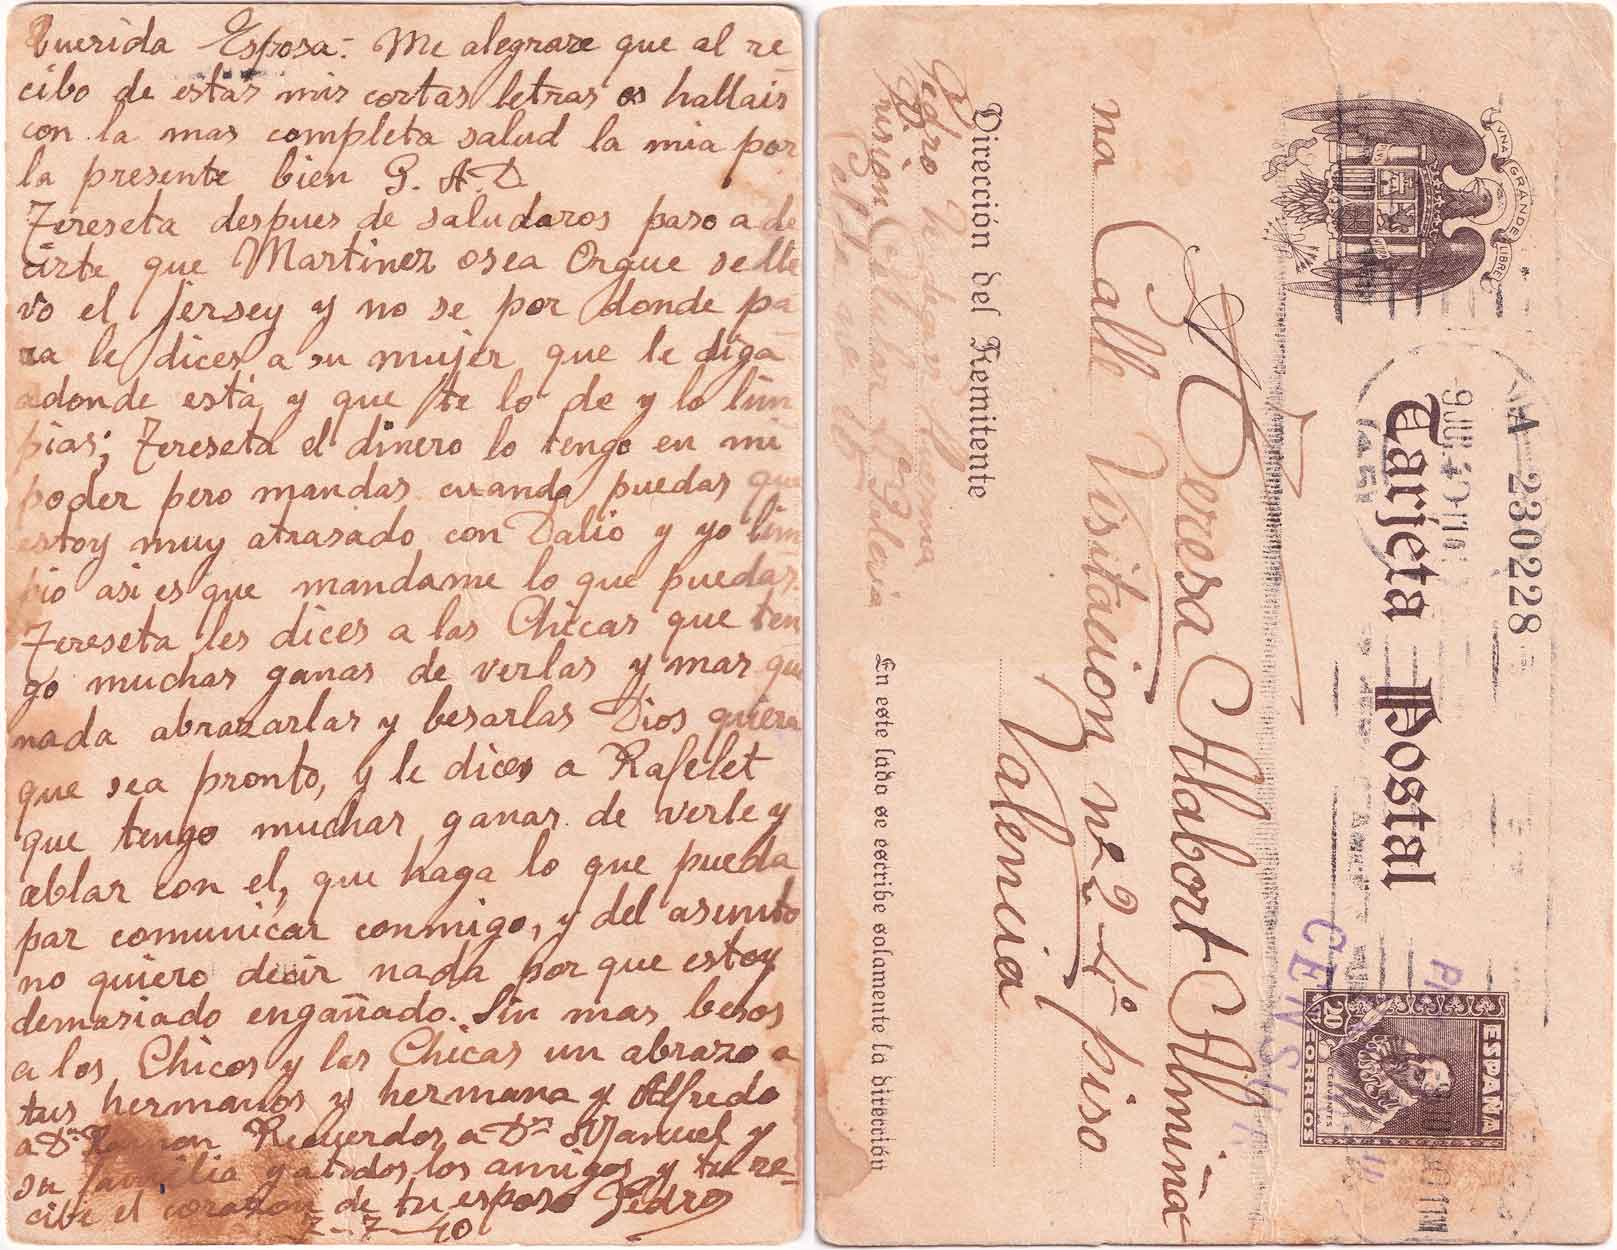 Querida Esposa:- Me alegrare que al re-
cibo de estas mis cortas letras os hallais
con la mas completa salud la mia por
la presente bien G. A. D.
Tereseta despues de saludaros paso a de
cirte que Martinez osea Orgue se lle
vo el jersey y no se por donde pa-
ra le dices a su mujer que le diga
adonde está y que te lo de y lo lim
pias; Tereseta el dinero lo tengo en mi
poder pero mandas cuando puedas que
estoy muy atrasado con Dalio y yo lim-
pio asi es que mandame lo que puedas.
Tereseta les dices a las Chicas que ten
go muchas ganas de verlas y mas que
nada abrazarlas y besarlas Dios quiera
que sea pronto, y le dices a Rafelet
que tengo muchas ganas de verle y
ablar con el, que haga lo que pueda
par comunicar conmigo, y del asunto
no quiero decir nada por que estoy
demasiado engañado. Sin mas besos
a los Chicos y las Chicas un abrazo a
tus hermanos y hermana y Alfredo
a Dn Ramon Recuerdos a Dn Manuel y
su familia y a todos los amigos y tu re-
cibe el corazon de tu esposo Pedro
7-7-40
UNA GRANDE LIBRE
A 230228
Tarjeta Postal
9 JUL 40
CENSURA
ESPAÑA
CERVANTES
20 CTS
CORREOS
A Teresa Alabort Almiña
na Calle Visitacion nº 2 4º piso
Valencia
Dirección del Remitente
Pedro
Prision Celular 4ª Galeria
En este lado se escribe solamente la dirección